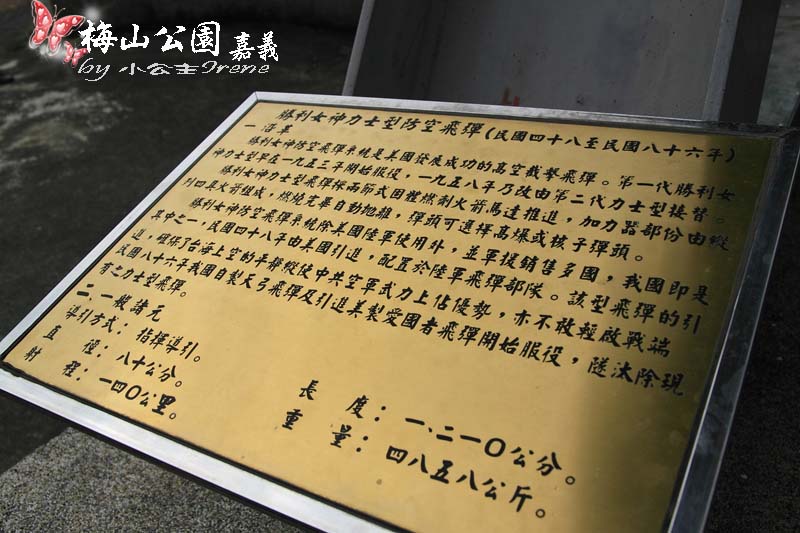 梅山公園 嘉義
by 小公主Irene
勝利女神力士型防空飛彈(民國四十八至民國八十六年)
一沿革
勝利女神防空飛彈系統是美國發展成功的高空截擊飛彈。第一代勝利女
神力士型早在一九五三年開始服役,一九五八年乃改由第二代力士型接替。
勝利女神力士型飛彈採兩節式固體燃料火箭馬達推進,加力器部份由縱
列四單火箭組成,燃燒完畢自動拋離,彈頭可選擇高爆或核子彈頭。
勝利女神防空飛彈系統除美國陸軍使用外,並軍援銷售多國,我國即是
其中之一,民國四十八年由美國引進,配置於陸軍飛彈部隊。該型飛彈的引
進,確保了台海上空的平靜縱使中共空軍武力上佔優勢,亦不敢輕啟戰端
民國八十六年我國自製天弓飛彈及引進美製愛國者飛彈開始服役,隧汰除現
有之力士型飛彈。
二、一般諸元
導引方式:指揮導引。
直 徑:八十公分。 長 度:一、二一0公分。
射 程:一四0公里。 重 量:四八五八公斤。